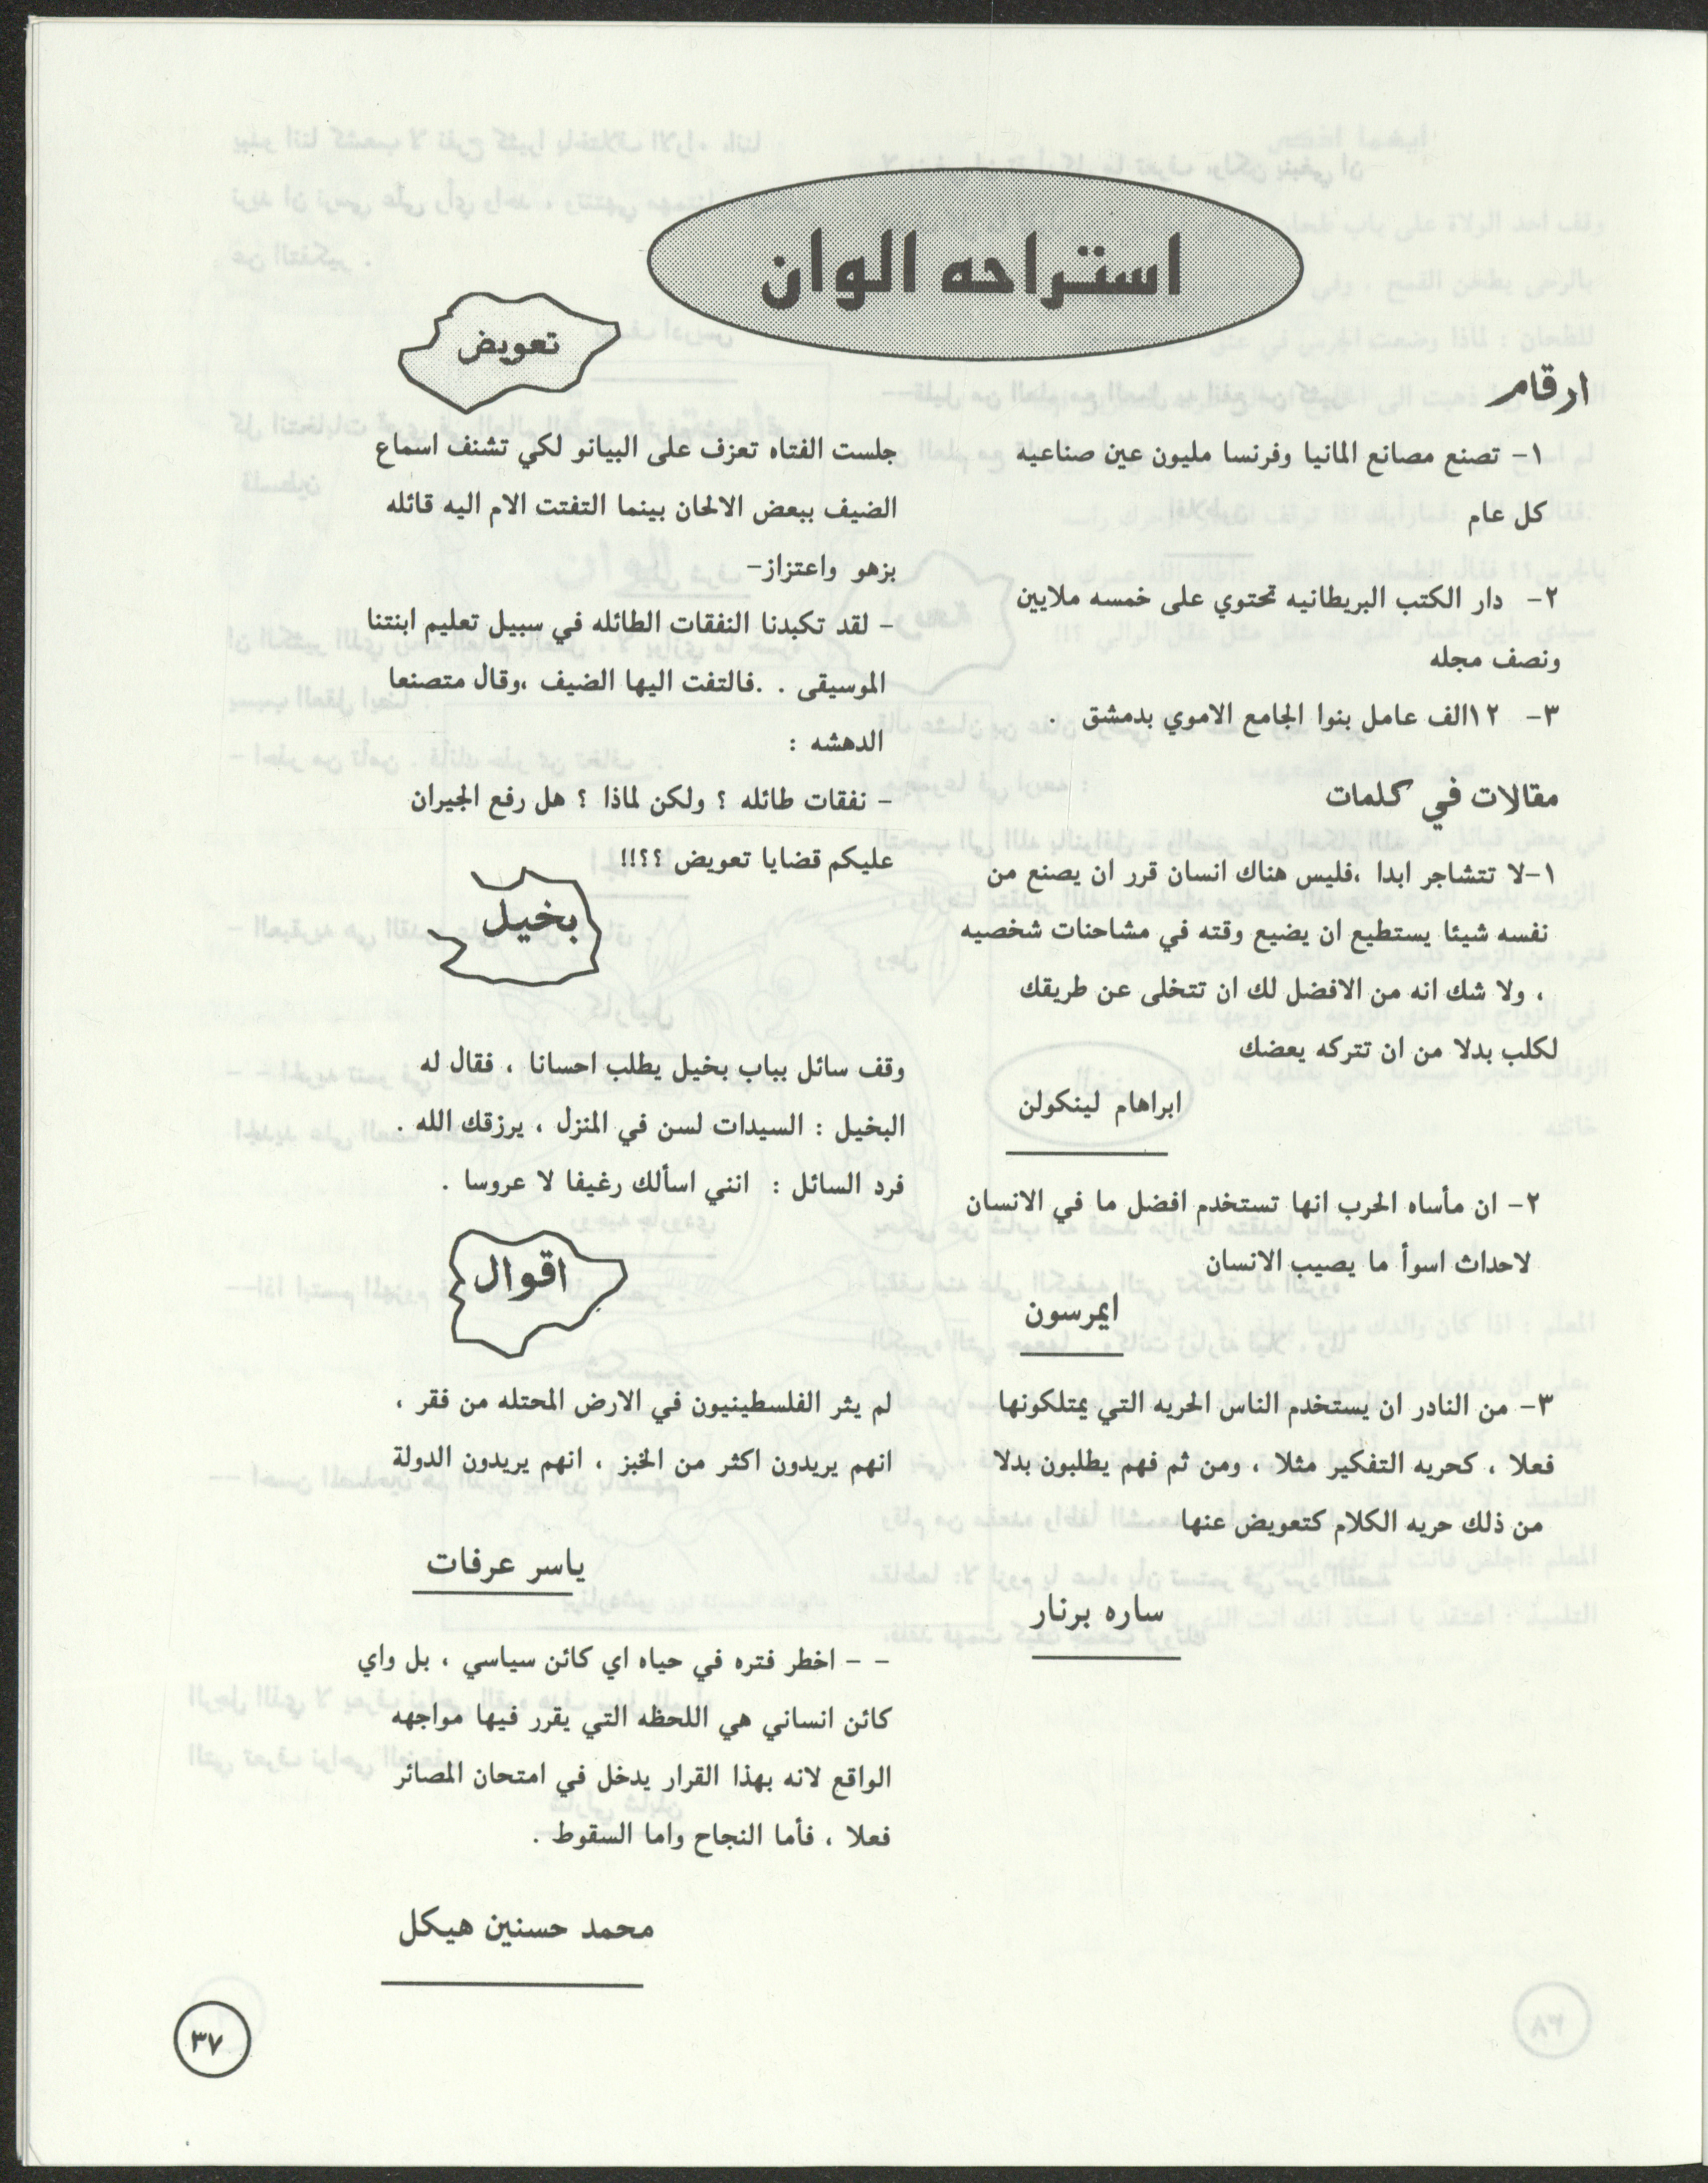 استراحه الوان
ارقام
١- تصنع مصانع المانيا وفرنسا مليون عين صناعيه
كل عام
٢- دار الكتب البريطانيه تحتوي على خمسه ملايين
ونصف مجله
٣- ١٢الف عامل بنوا الجامع الاموي بدمشق .
مقالات في كلمات
١-لا تتشاجر ابدا ،فليس هناك انسان قرر ان يصنع من
نفسه شيئا يستطيع ان يضيع وقته في مشاحنات شخصيه
، ولا شك انه من الافضل لك ان تتخلى عن طريقك
لكلب بدلا من ان تتركه يعضك
ابراهام لينكولن
٢- ان مأساه الحرب انها تستخدم افضل ما في الانسان
لاحداث اسوأ ما يصيب الانسان
ايمرسون
٣- من النادر ان يستخدم الناس الحريه التي يمتلكونها
فعلا ، كحريه التفكير مثلا ، ومن ثم فهم يطلبون بدلا
من ذلك حريه الكلام كتعويض عنها
ساره برنار
تعويض
جلست الفتاه تعزف على البيانو لكي تشنف اسماع
الضيف ببعض الالحان بينما التفتت الام اليه قائله
بزهو واعتزاز-
- لقد تكبدنا النفقات الطائله في سبيل تعليم ابنتنا
الموسيقى . .فالتفت اليها الضيف ،وقال متصنعا
الدهشه :
- نفقات طائله ؟ ولكن لماذا ؟ هل رفع الجيران
عليكم قضايا تعويض ؟؟!!
بخيل
وقف سائل بباب بخيل يطلب احسانا ، فقال له
البخيل : السيدات لسن في المنزل ، يرزقك الله .
فرد السائل : انني اسألك رغيفا لا عروسا .
اقوال
لم يثر الفلسطينيون في الارض المحتله من فقر ،
انهم يريدون اكثر من الخبز ، انهم يريدون الدولة
ياسر عرفات
- - اخطر فتره في حياه اي كائن سياسي ، بل واي
كائن انساني هي اللحظه التي يقرر فيها مواجهه
الواقع لانه بهذا القرار يدخل في امتحان المصائر
فعلا ، فأما النجاح واما السقوط .
محمد حسنين هيكل
٣٧